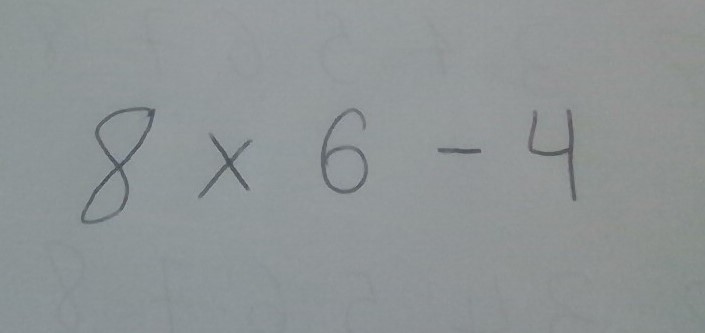 8 × 6 - 4